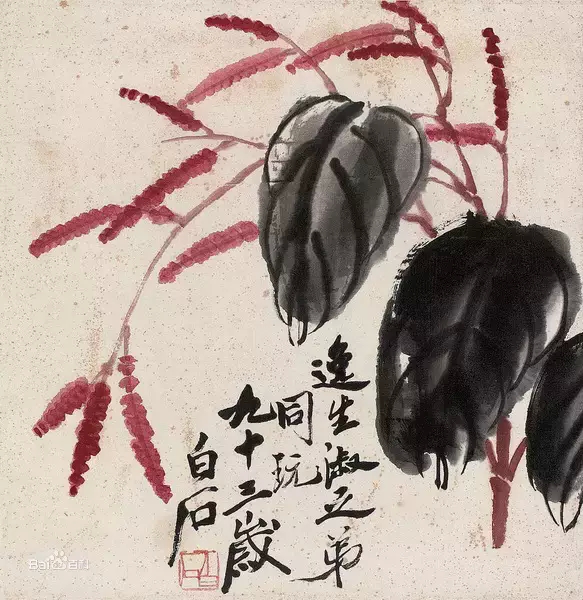 逸生淑之弟
同玩
九十三歲
白石
Baidu百科